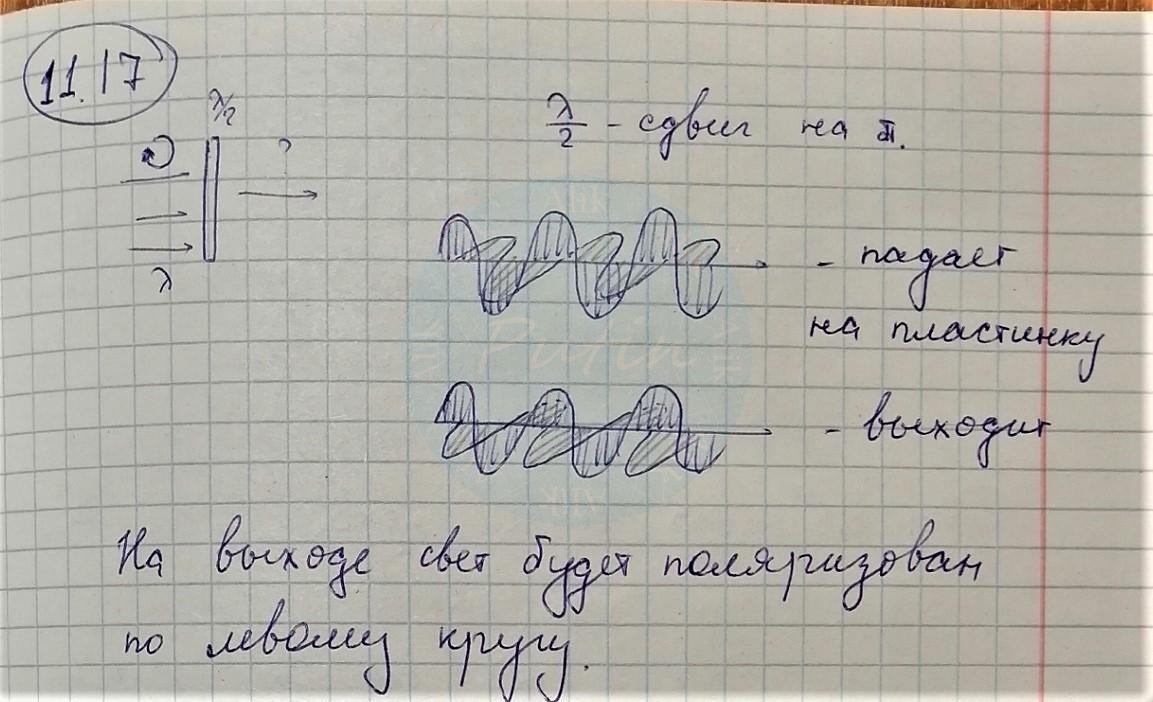 11.17
λ/2
?
λ
λ/2 - сдвиг на π.
- падает
на пластинку
- выходит
На выходе свет будет поляризован
по левому кругу.
Putin